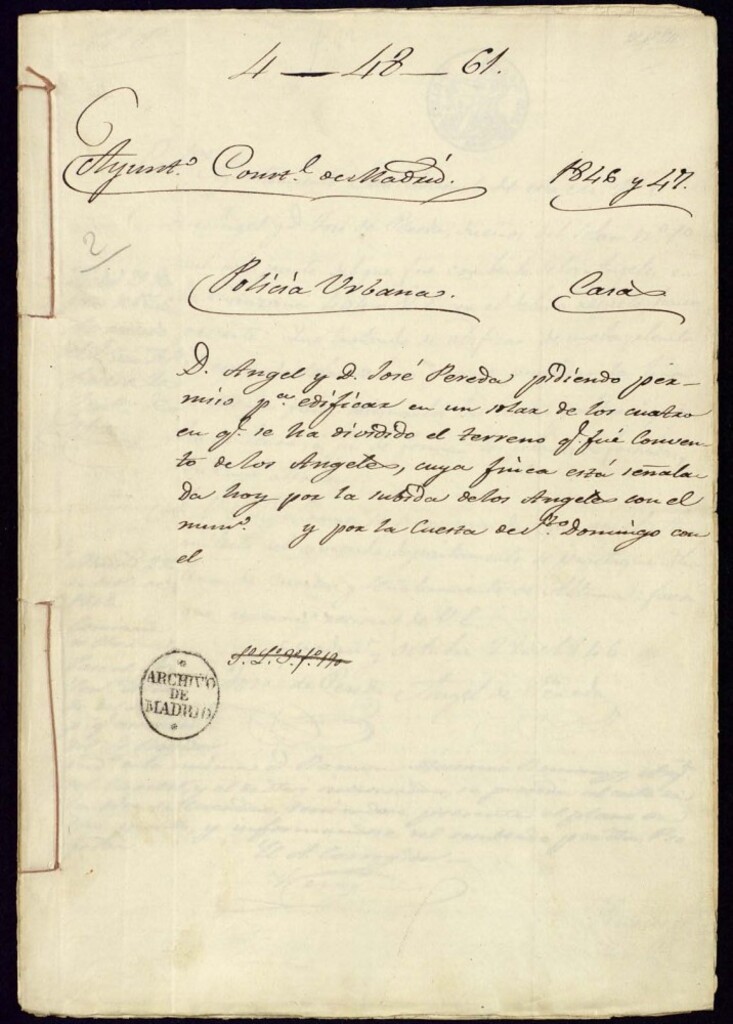 4 — 48 — 61.
Ayunt.º Const.l de Madrid. 1846 y 47.
2/
Policía Urbana. Casas
D. Angel y D. José Pereda pidiendo per-
miso p.ª edificar en un solar de los cuatro
en q.e se ha dividido el terreno q.e fué Conven-
to de los Angeles, cuya finca está señala-
da hoy por la subida de los Angeles con el
num.º y por la Cuesta de S.to Domingo con
el
ARCHIVO
DE
MADRID